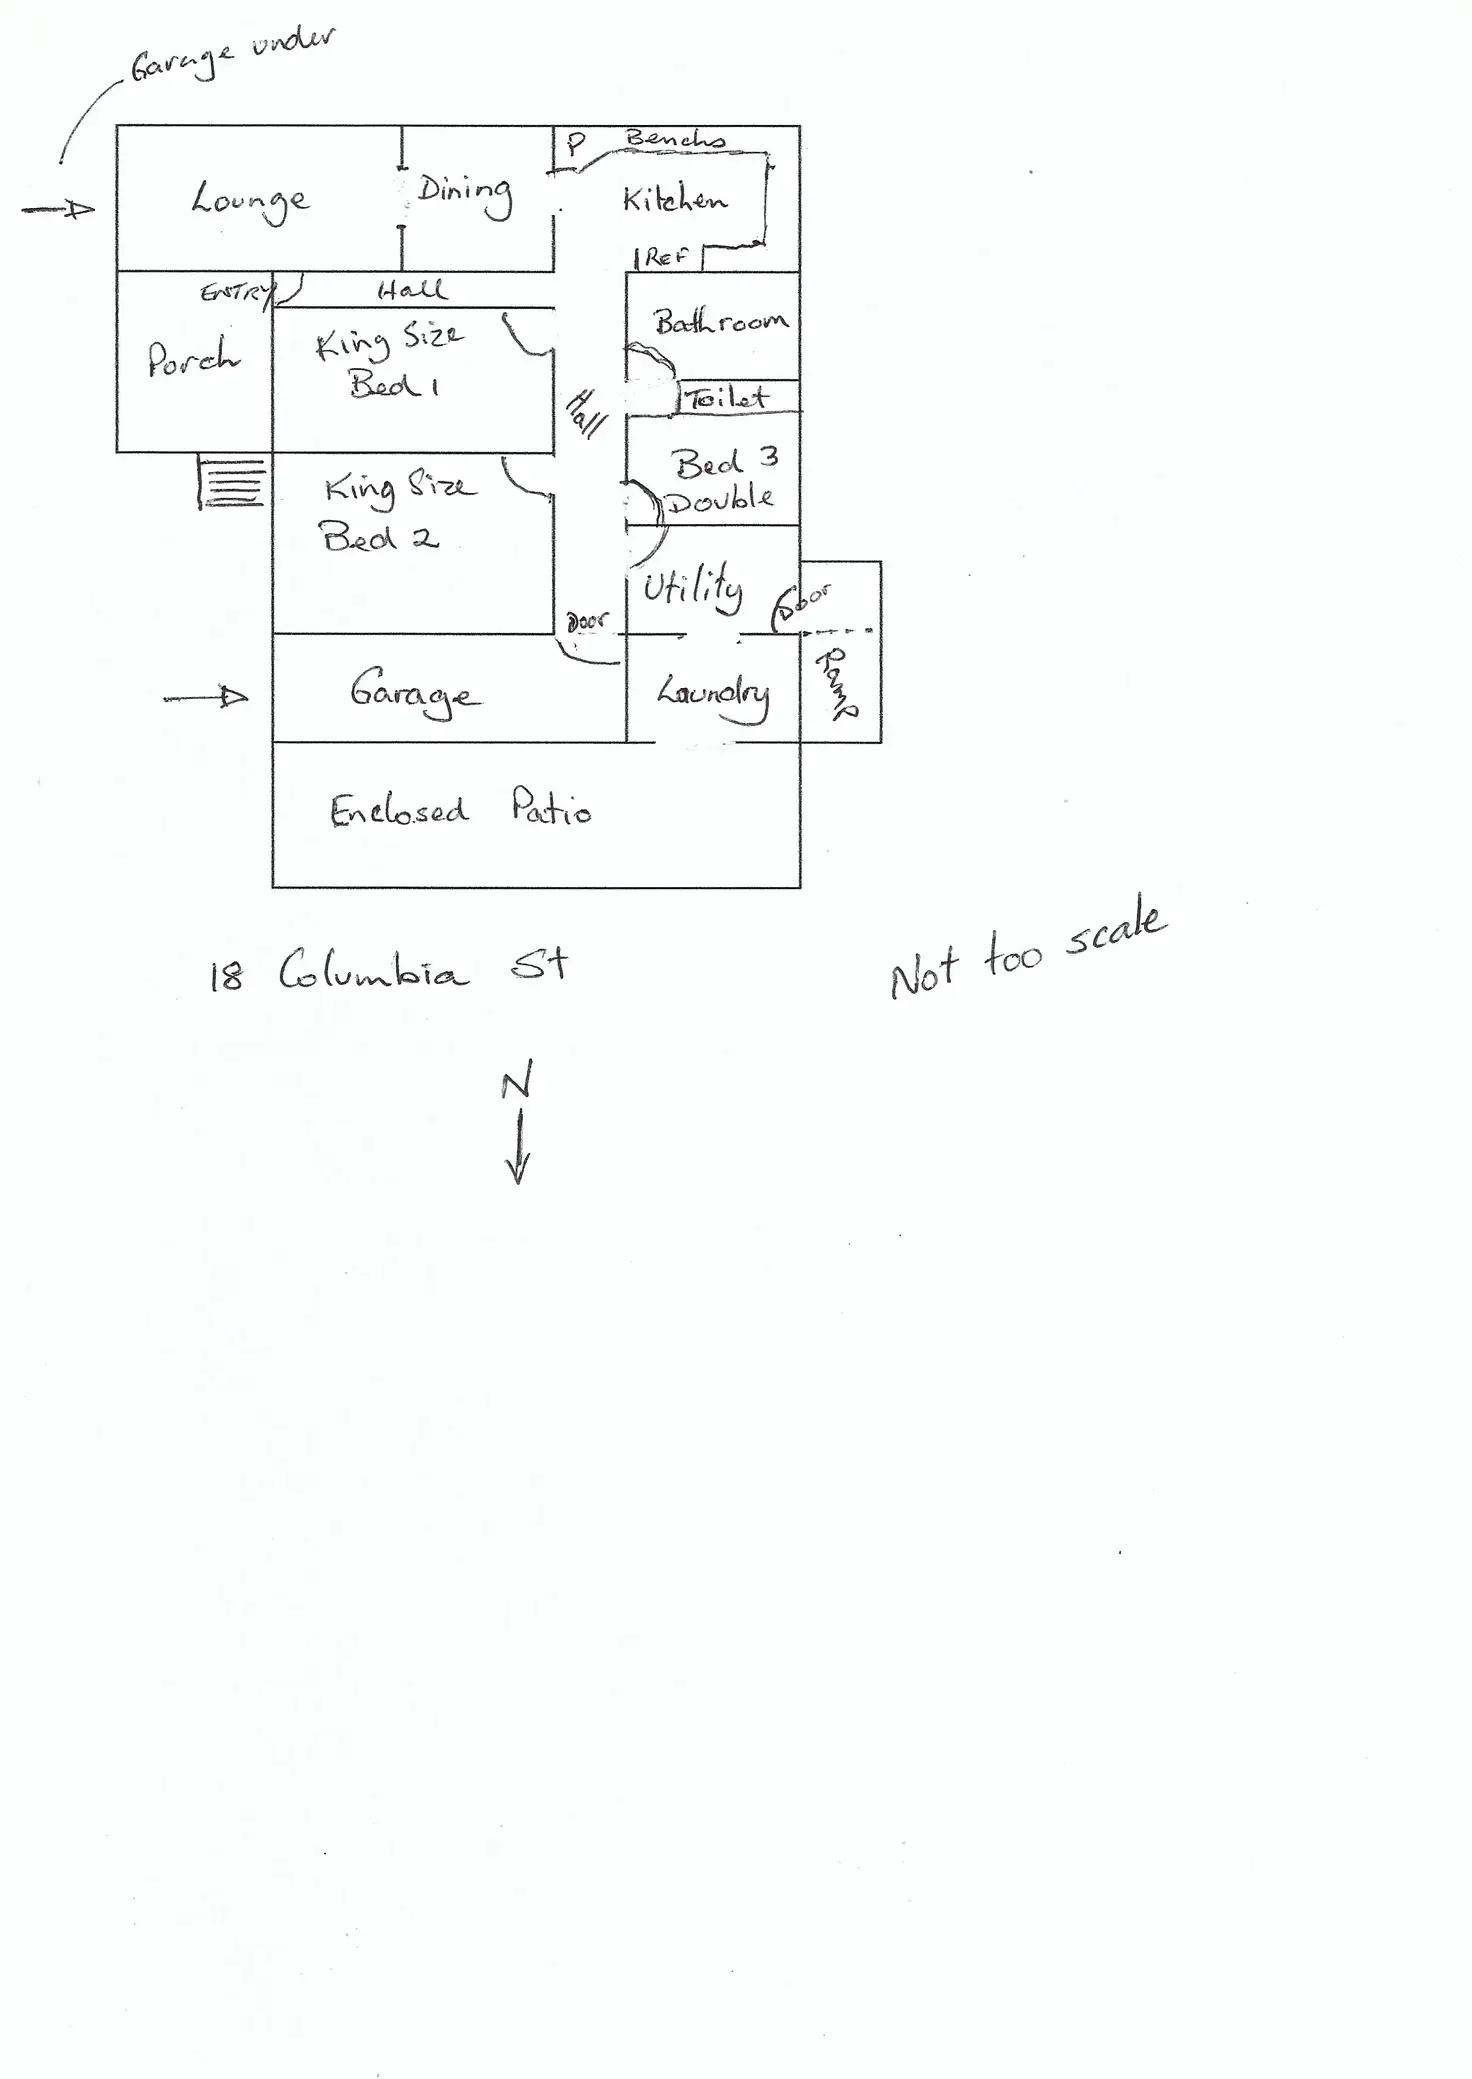 Garage under
P Benchs
Lounge
Dining
Kitchen
REF
ENTRY
Hall
Porch
King Size
Bed 1
Bathroom
Hall
Toilet
King Size
Bed 2
Bed 3
Double
Utility
Door
Door
Ramp
Garage
Laundry
Enclosed Patio
18 Columbia St
Not too scale
N